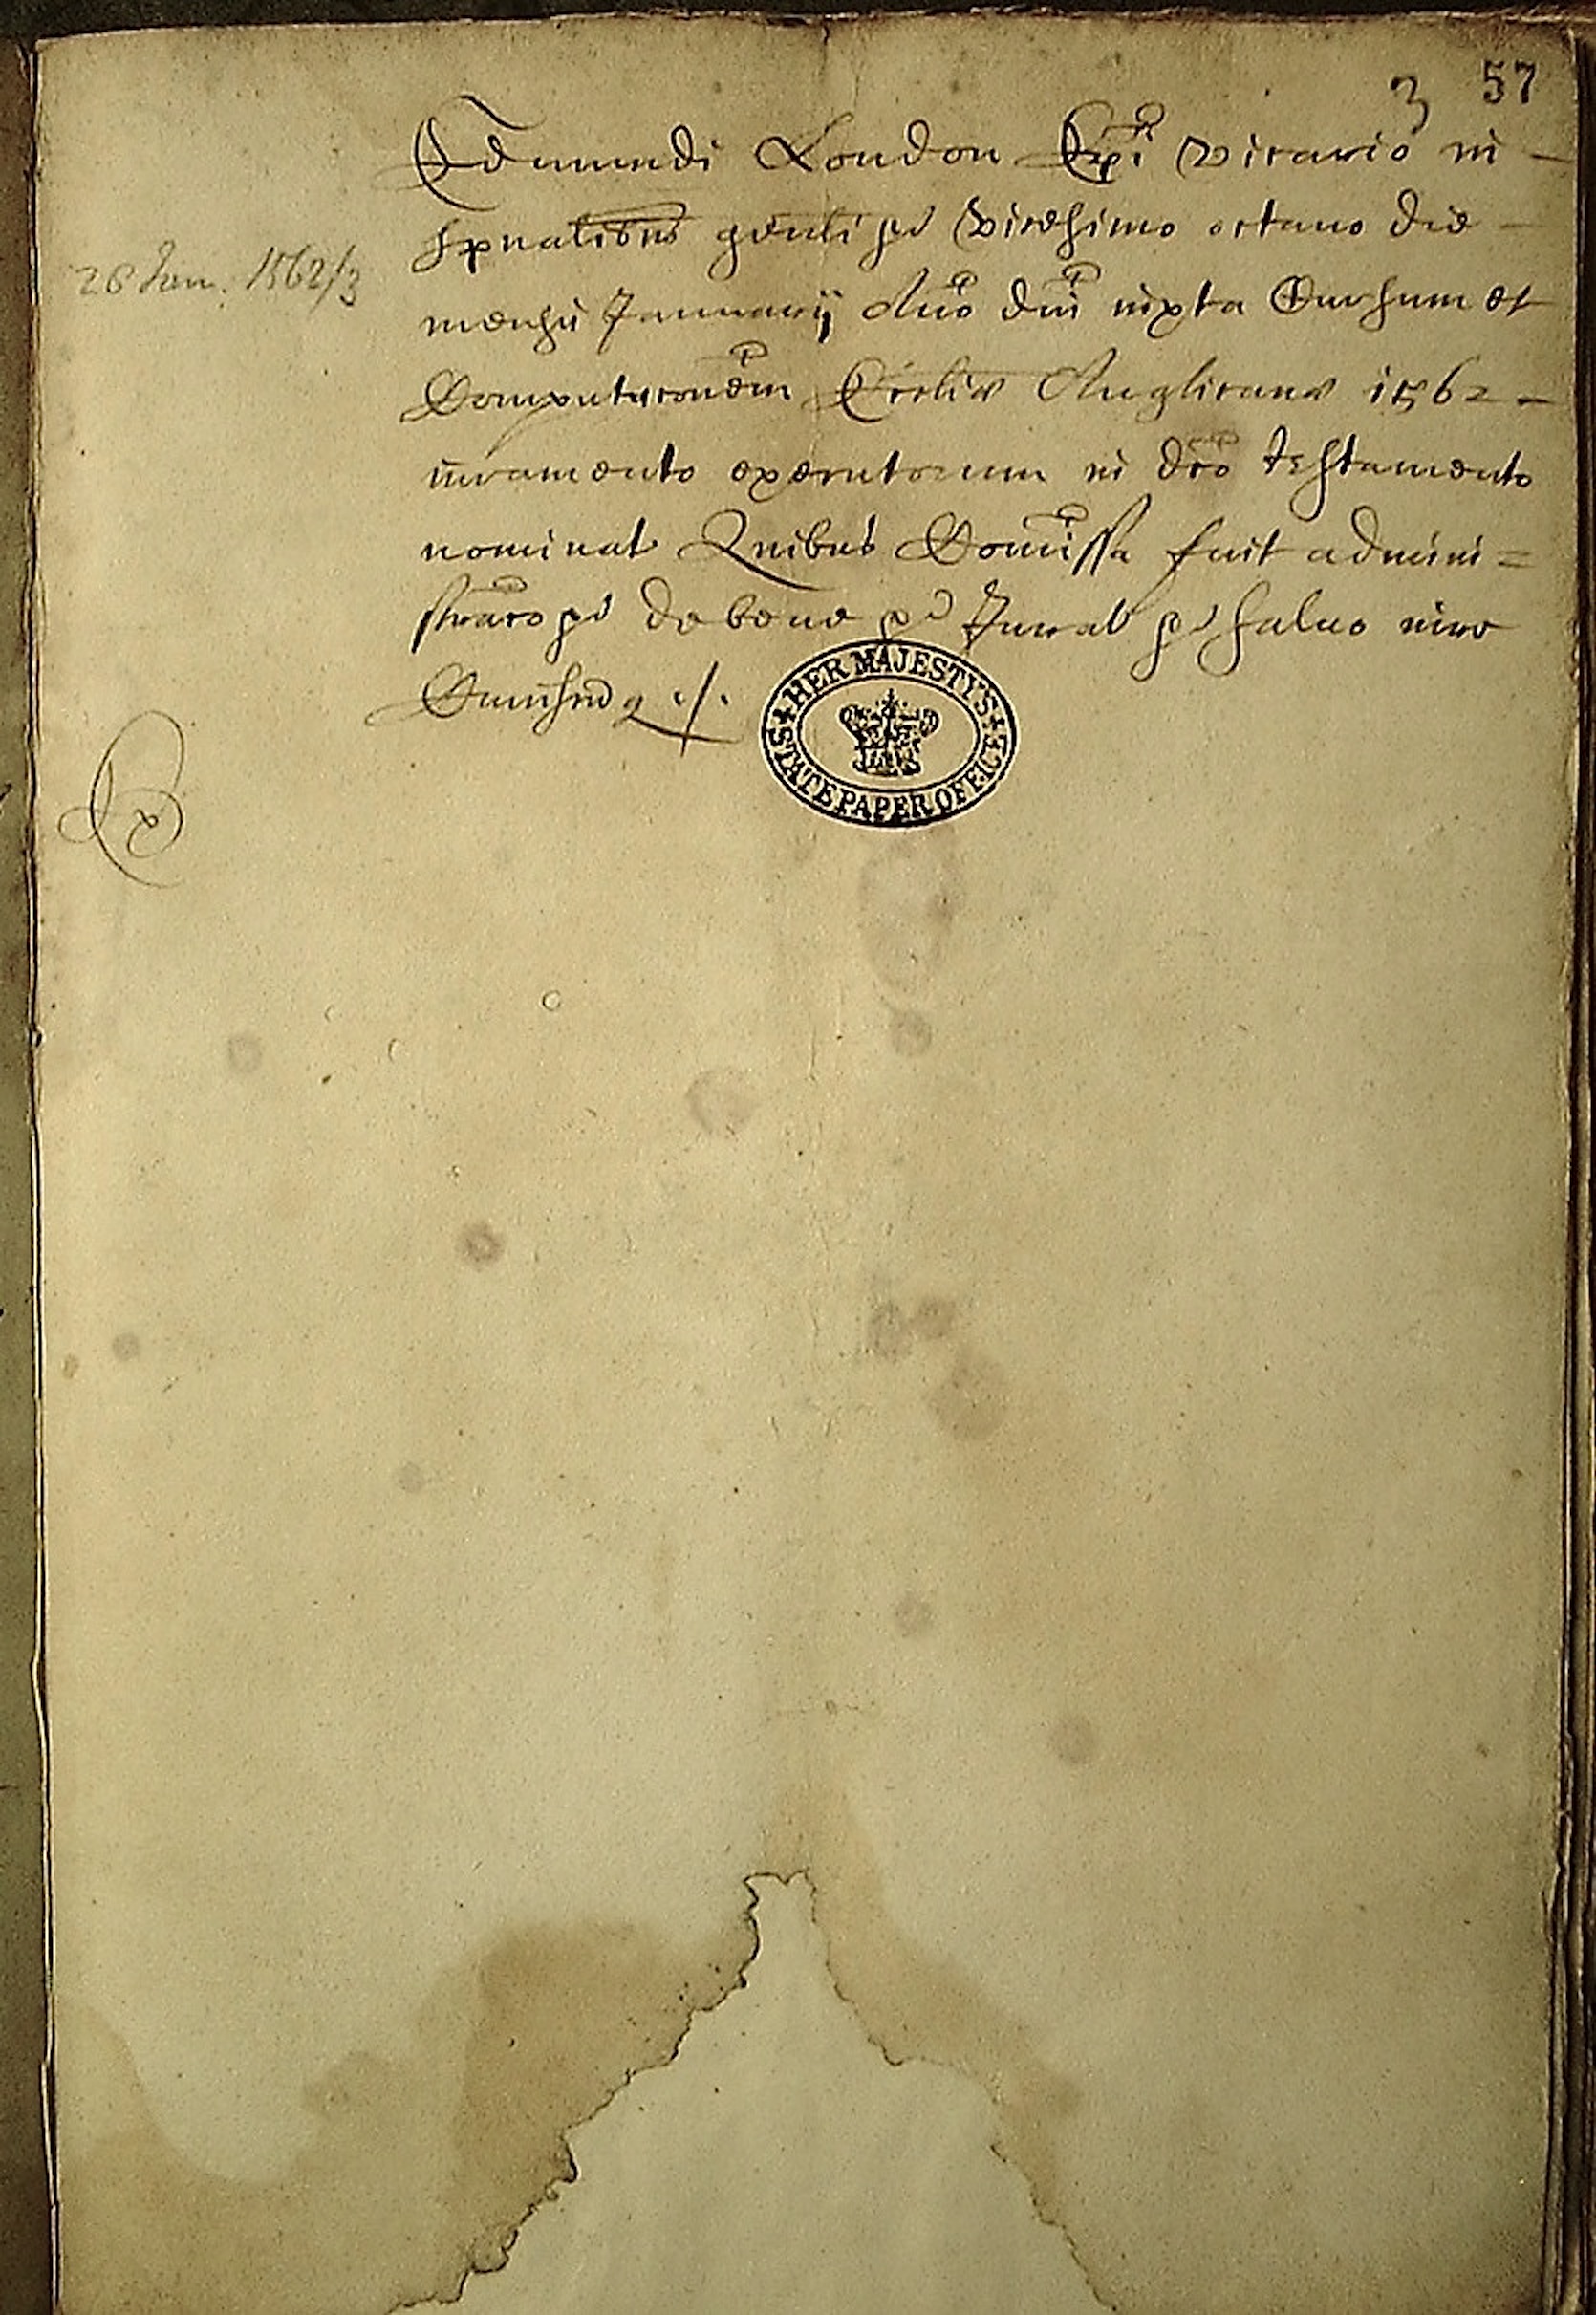 3 57
Edmundi London Epi vicario in
spualibus genli pd vicesimo octauo die
26 Jan. 1562/3
mensis Januarij Ano dni iuxta Cursum et
Computaconem Ecclie Anglicane 1562
iuramento executorum in dco testamento
nominat Quibus Comissa fuit admini=
straco pd de bene pd Jurat pd saluo iure
Cuiuscunq ./.
HER MAJESTY'S
STATE PAPER OFFICE